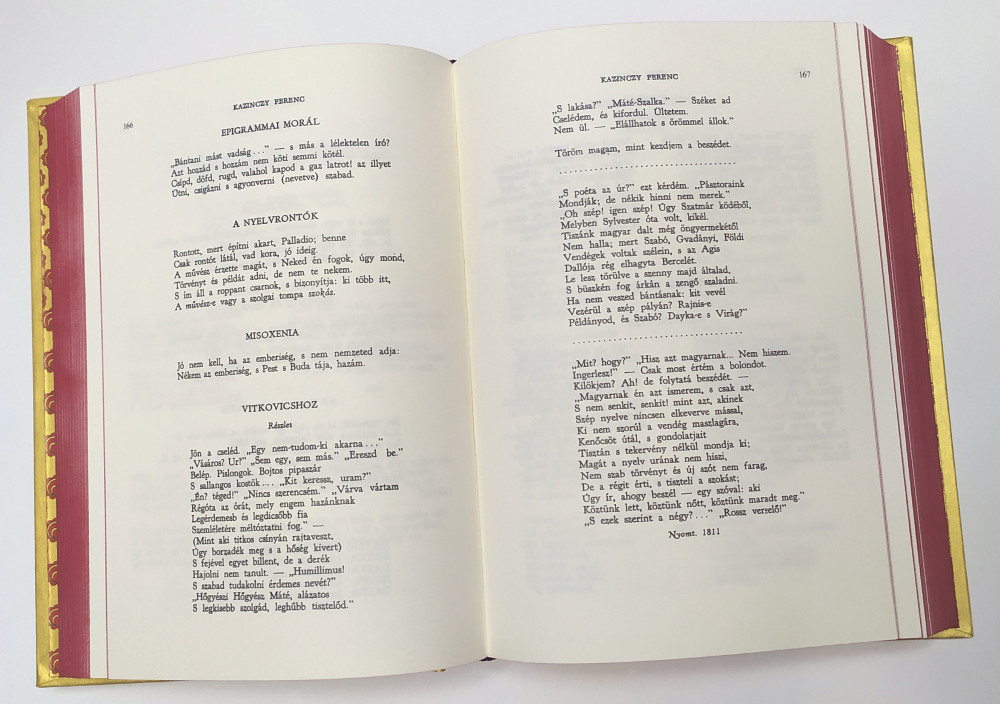 KAZINCZY FERENC
166
EPIGRAMMAI MORÁL
„Bántani mást vadság...” — s más a lélektelen író?
Azt hozzád s hozzám nem köti semmi kötél.
Csípd, döfd, rugd, valahol kapod a gaz latrot! az illyet
Ütni, csigázni s agyonverni (nevetve) szabad.
A NYELVRONTÓK
Rontott, mert építni akart, Palladio; benne
Csak rontót látál, vad kora, jó ideig.
A művész érzette magát, s Neked én fogok, úgy mond,
Törvényt és példát adni, de nem te nekem.
S ím áll a roppant csarnok, s bizonyítja: ki több itt,
A művész-e vagy a szolgai tompa szokás.
MISOXENIA
Jó nem kell, ha az emberiség, s nem nemzeted adja:
Nékem az emberiség, s Pest s Buda tája, hazám.
VITKOVICSHOZ
Részlet
Jön a cseléd. „Egy nem-tudom-ki akarna...”
„Vásáros? Ur?” „Sem egy, sem más.” „Ereszd be.”
Belép. Pislongok. Bojtos pipaszár
S sallangos kostök.... „Kit keressz, uram?”
„Én? téged!” „Nincs szerencsém.” „Várva vártam
Régóta az órát, mely engem hazánknak
Legérdemesb és legdicsőbb fia
Szemléletére méltóztatni fog.” —
(Mint aki titkos csínyán rajtaveszt,
Úgy borzadék meg s a hőség kivert)
S fejével egyet billent, de a derék
Hajolni nem tanult. — „Humillimus!
S szabad tudakolni érdemes nevét?”
„Hőgyészi Hőgyész Máté, alázatos
S legkisebb szolgád, leghűbb tisztelőd.”
KAZINCZY FERENC
167
„S lakása?” „Máté-Szalka.” — Széket ad
Cselédem, és kifordul. Ültetem.
Nem ül. — „Elállhatok s örömmel állok.”
Töröm magam, mint kezdjem a beszédet.
. . . . . . . . . . . . . . . . . . . . . . . . . . . . . .
„S poéta az úr?” ezt kérdém. „Pásztoraink
Mondják; de nékik hinni nem merek.”
„Oh szép! igen szép! Úgy Szatmár ködéből,
Melyben Sylvester óta volt, kikél.
Tiszánk magyar dalt még öngyermekétől
Nem halla; mert Szabó, Gvadányi, Földi
Vendégek voltak szélein, s az Agis
Dallója rég elhagyta Bercelét.
Le lesz törülve a szenny majd általad,
S büszkén fog árkán a zengő szaladni.
Ha nem veszed bántásnak: kit vevél
Vezérül a szép pályán? Rajnis-e
Példányod, és Szabó? Dayka-e s Virág?”
. . . . . . . . . . . . . . . . . . . . . . . . . . . . . .
„Mit? hogy?” „Hisz azt magyarnak... Nem hiszem.
Ingerlesz!” — Csak most értém a bolondot.
Kilökjem? Ah! de folytatá beszédét. —
„Magyarnak én azt ismerem, s csak azt,
S nem senkit, senkit! mint azt, akinek
Szép nyelve nincsen elkeverve mással,
Ki nem szorúl a vendég maszlagára,
Kenőcsöt útál, s gondolatjait
Tisztán s tekervény nélkül mondja ki;
Magát a nyelv urának nem hiszi,
Nem szab törvényt és új szót nem farag,
De a régit érti, s tiszteli a szokást;
Úgy ír, ahogy beszél — egy szóval: aki
Köztünk lett, köztünk nőtt, köztünk maradt meg.”
„S ezek szerint a négy?...” „Rossz verselő!”
Nyomt. 1811